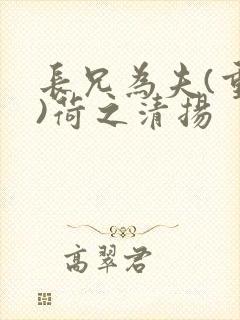 長兄為夫(重
)荷之清揚
高翠君